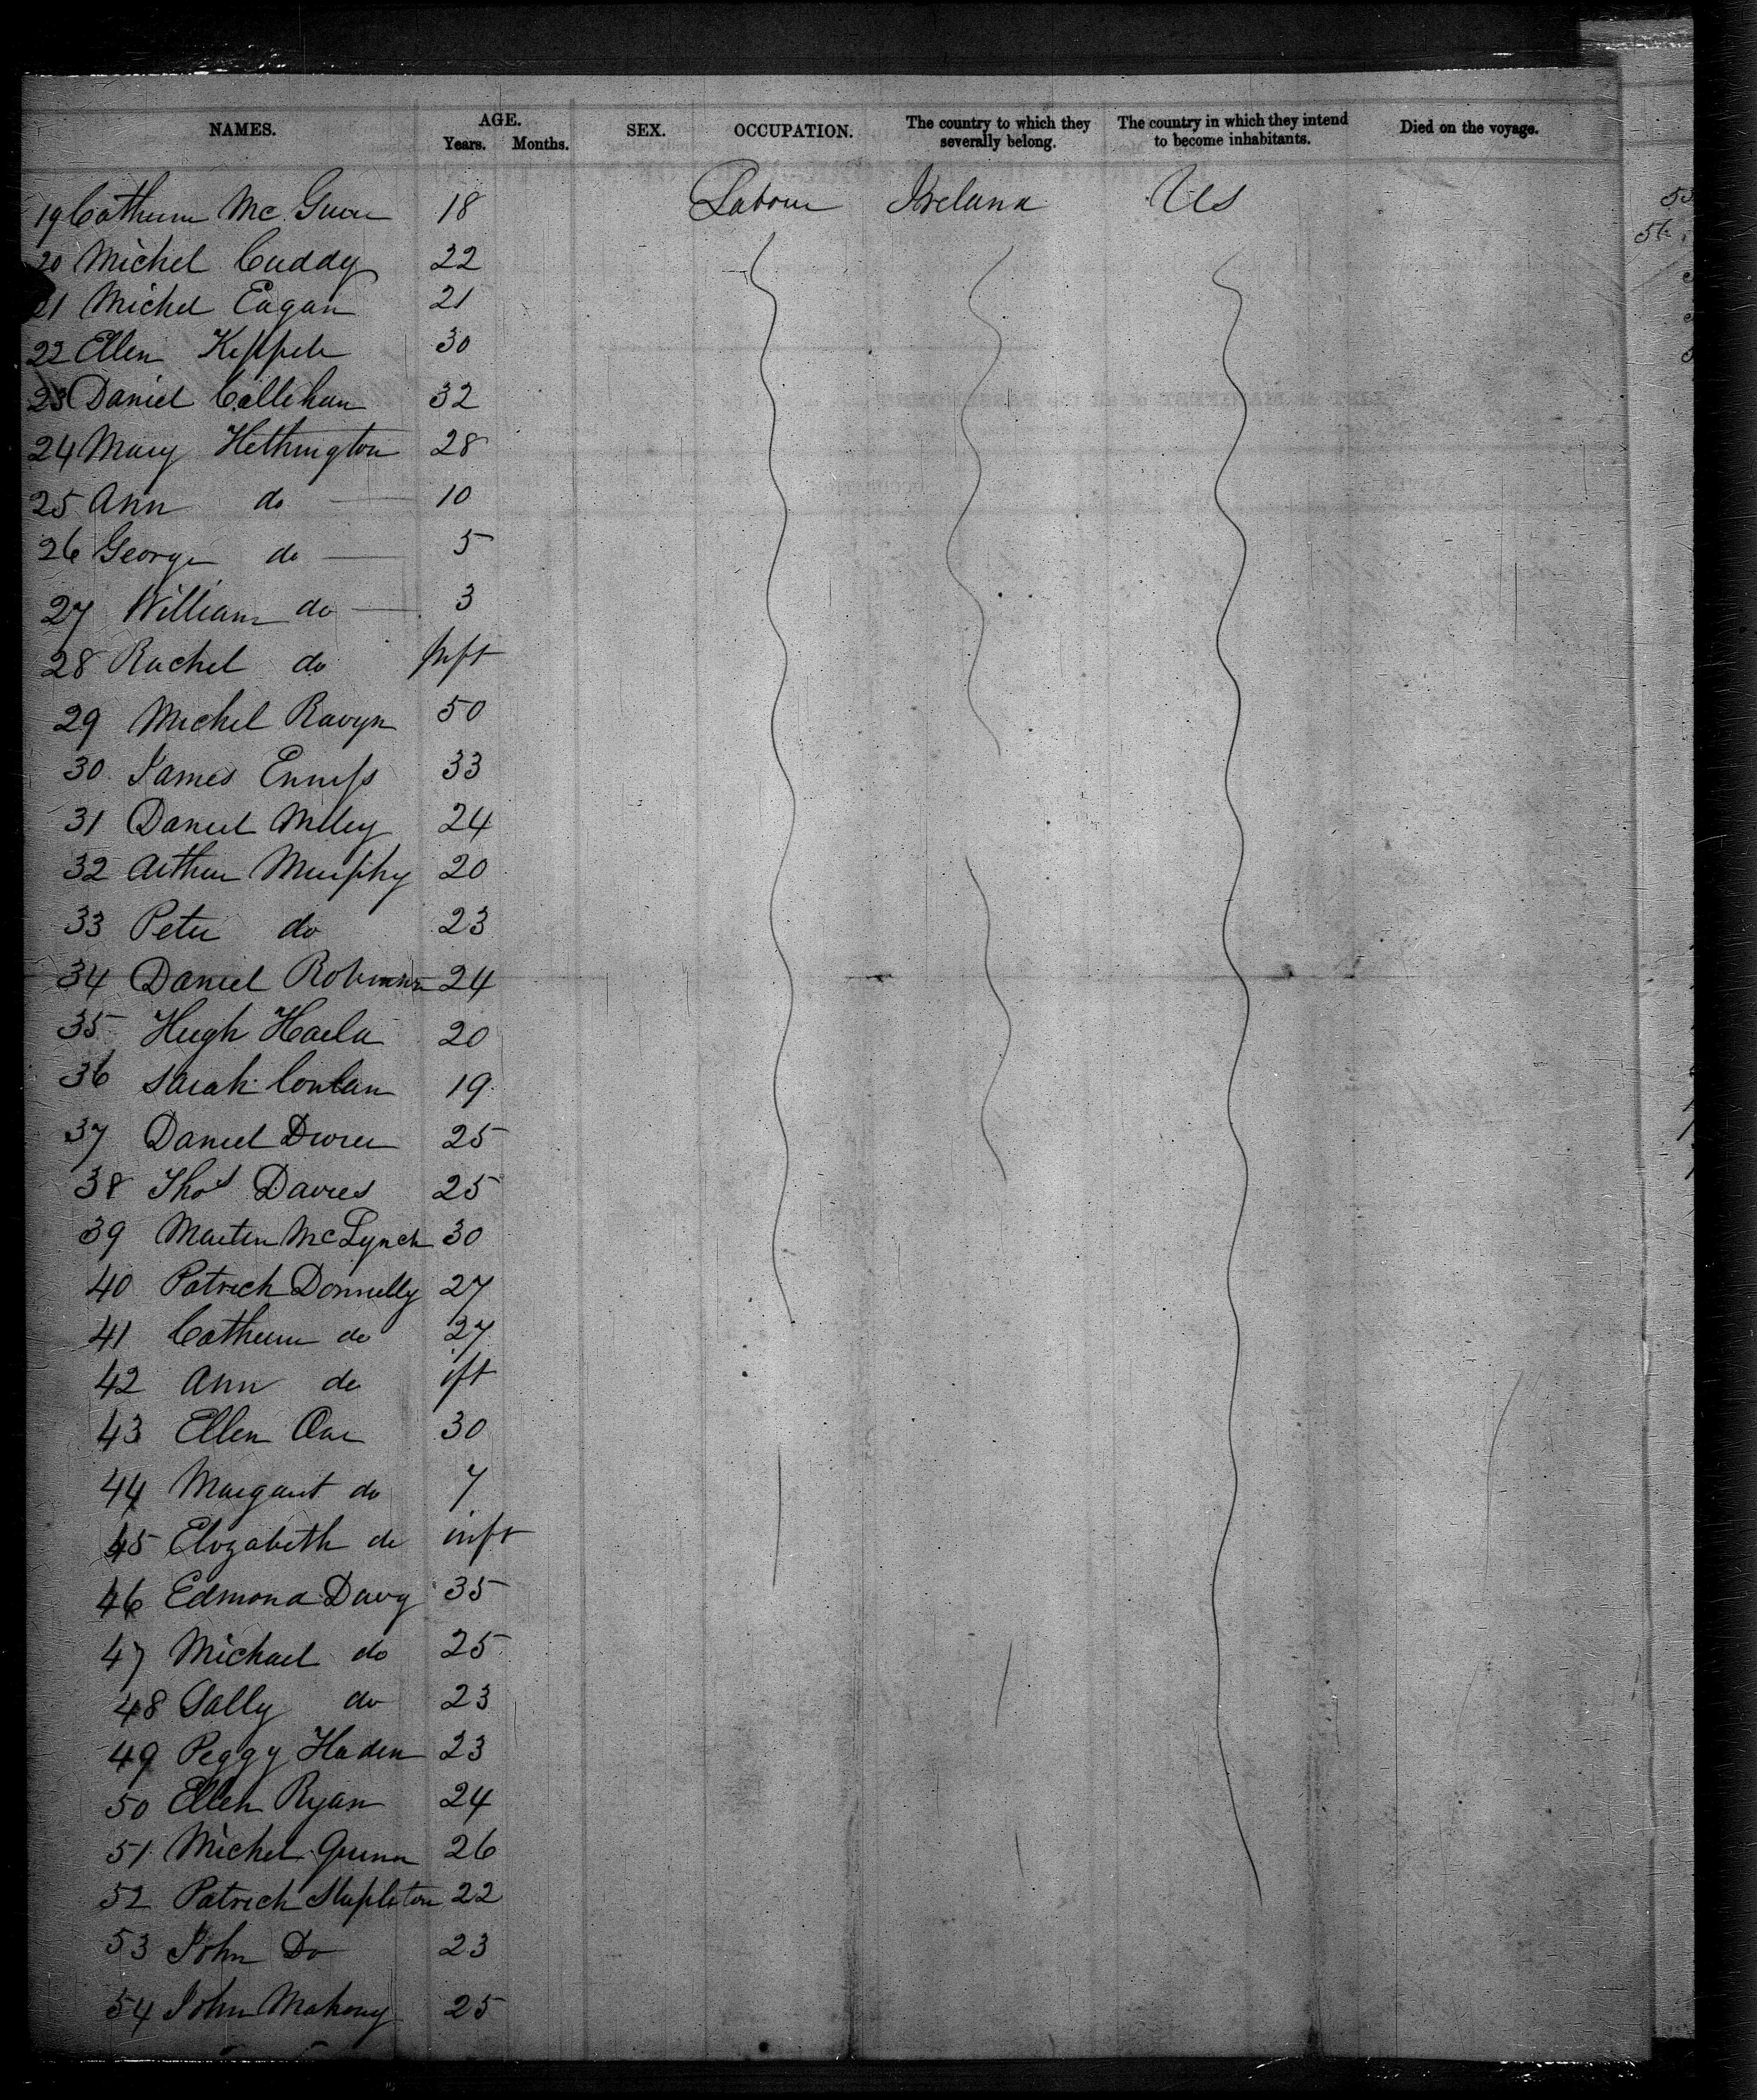 NAMES. AGE. Years. Months. SEX. OCCUPATION. The country to which they severally belong. The country in which they intend to become inhabitants. Died on the voyage.
19 Catherine Mc Guire 18 Labour Ireland US
20 Michel Cuddy 22
21 Michel Eagan 21
22 Ellen 30
23 Daniel Callehan 32
24 Mary Hethington 28
25 Ann do 10
26 George do 5
27 William do 3
28 Rachel do Inft
29 Michel Ravyn 50
30 James Enniss 33
31 Daniel 24
32 Arthur Murphy 20
33 Peter do 23
34 Daniel Robinson 24
35 Hugh 20
36 Sarah Conlan 19
37 Daniel 25
38 Thos Davies 25
39 Martin McLynch 30
40 Patrick Donnelly 27
41 Catherine do 27
42 Ann do ift
43 Ellen 30
44 Margaret do 7
45 Elizabeth do inft
46 Edmond Davy 35
47 Michael do 25
48 Sally do 23
49 Peggy Haden 23
50 Ellen Ryan 24
51 Michel Quinn 26
52 Patrick Stapleton 22
53 John Do 23
54 John Mahony 25